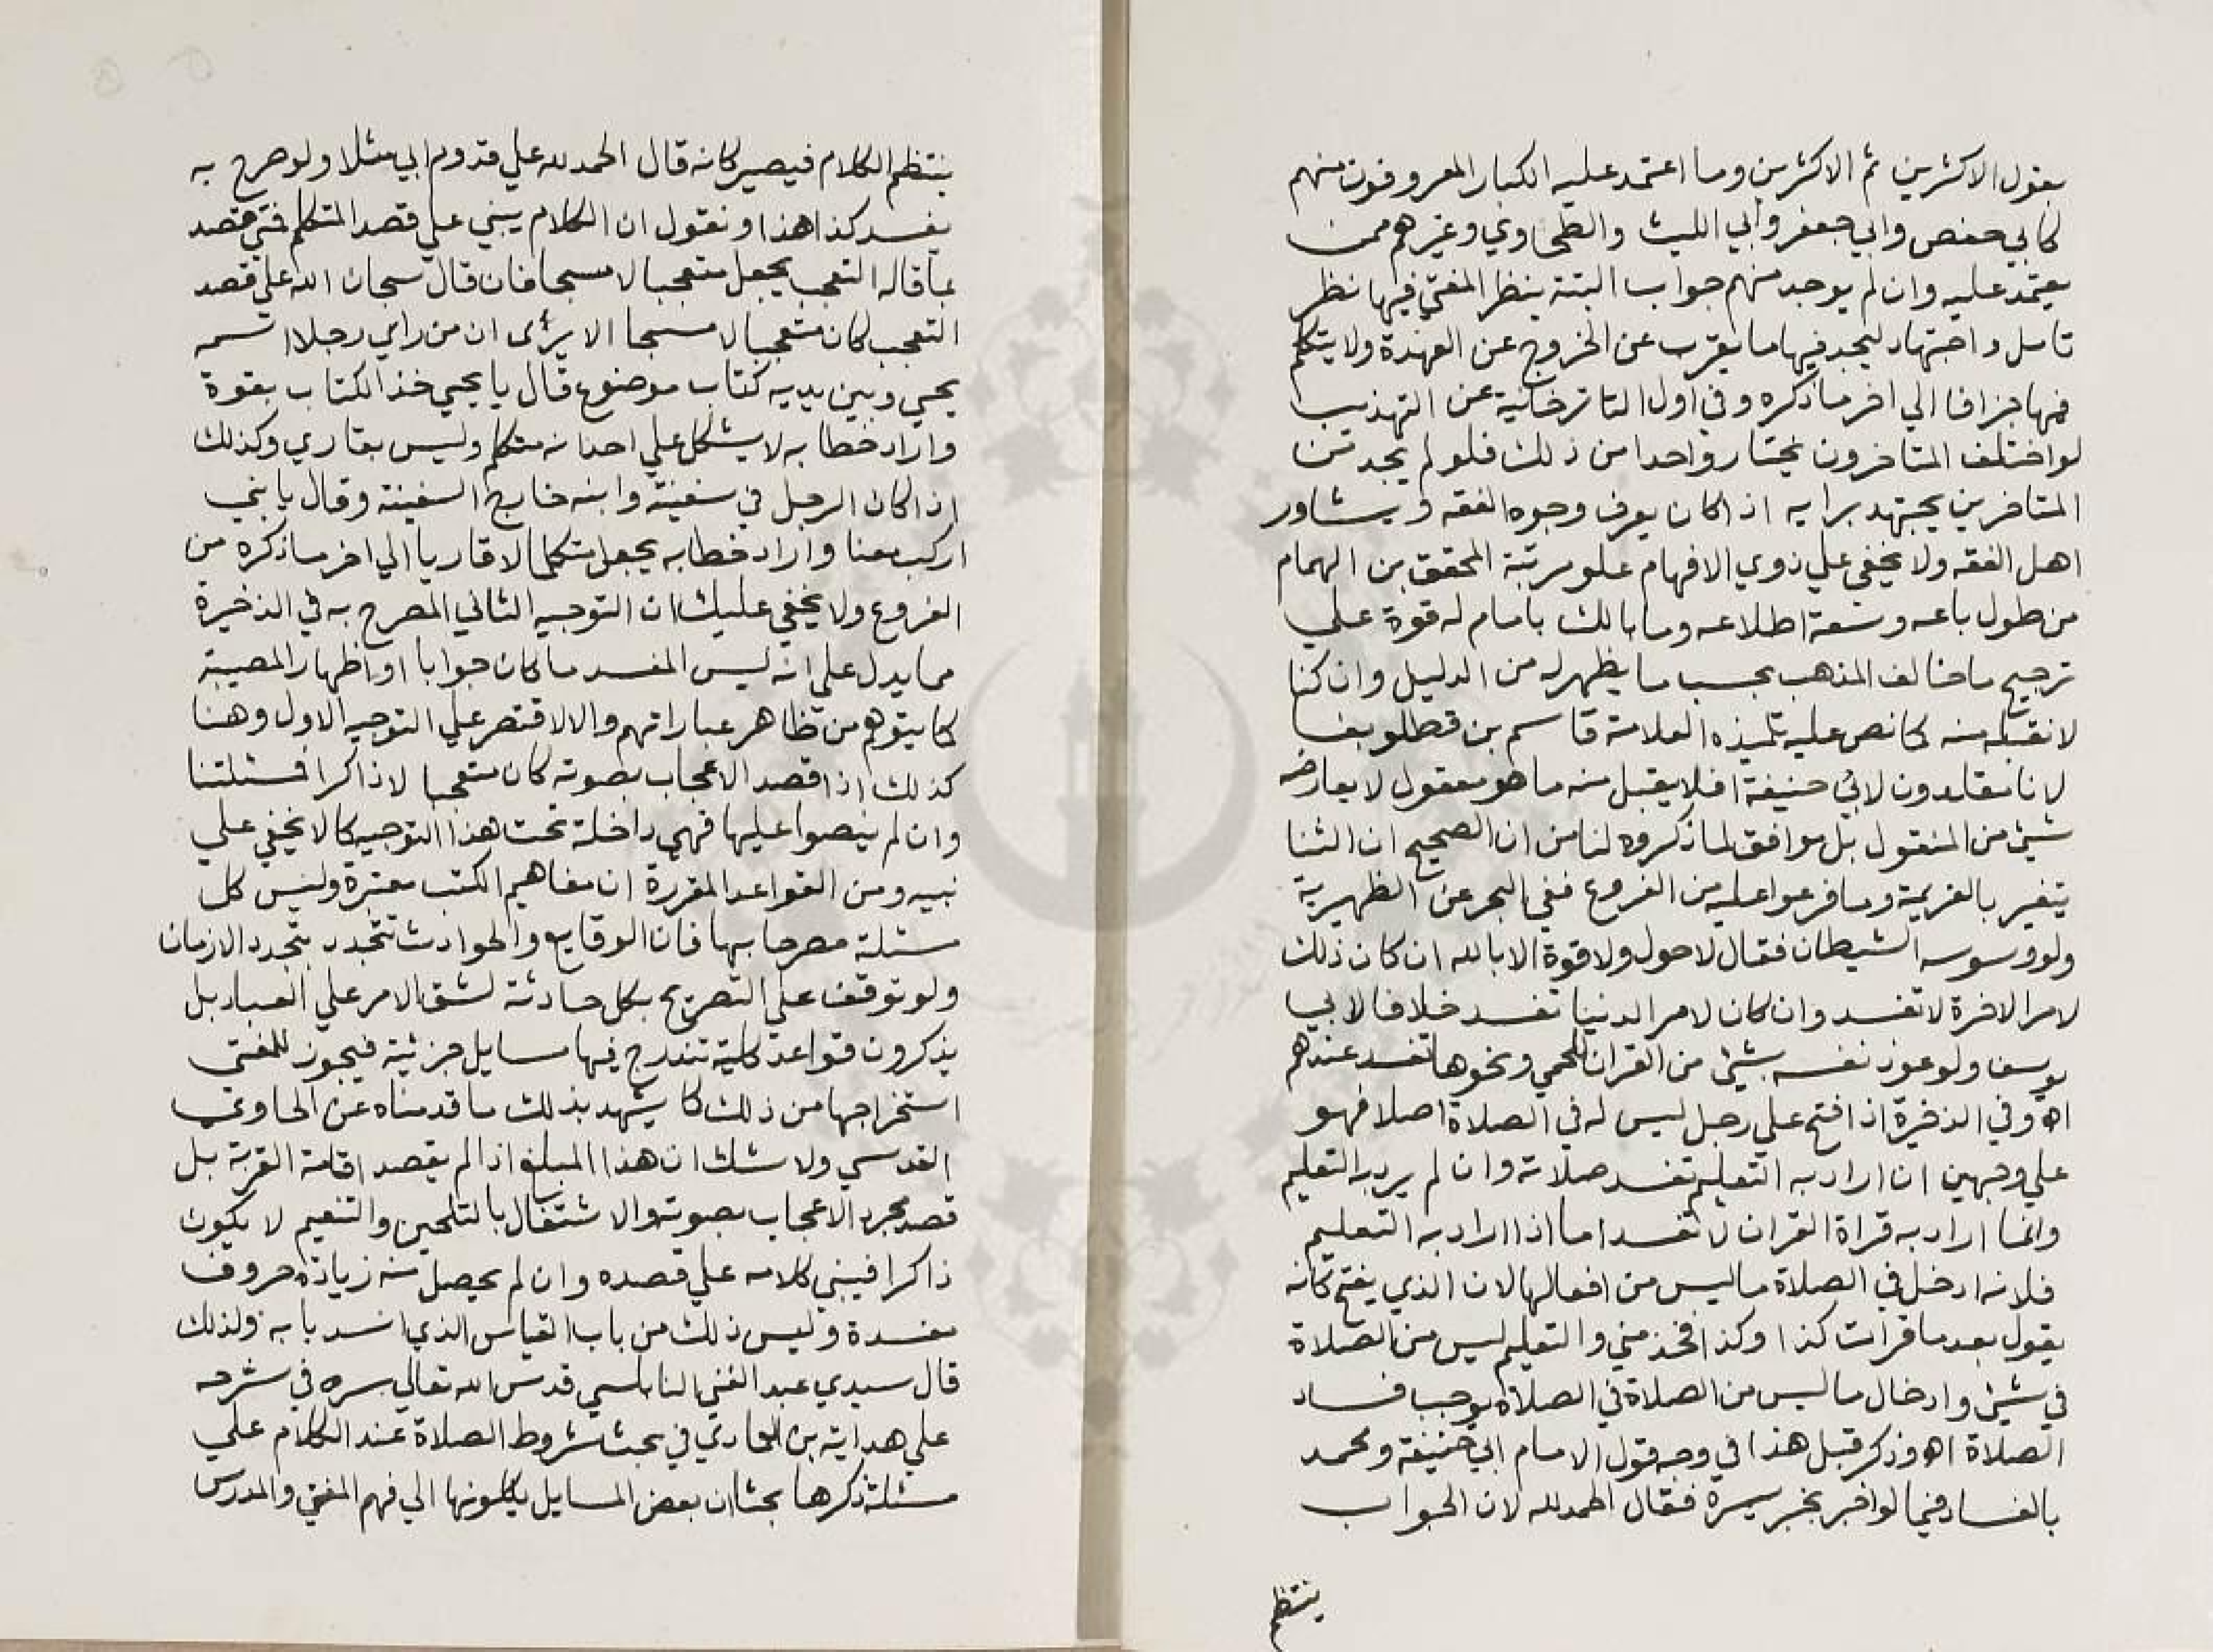 بقول الاكثرين ثم الاكثرين وما اعتمد عليه الكبار المعروفون منهم
كابي حفص وابي جعفر وابي الليث والطحاوي وغيرهم ممن
يعتمد عليه وان لم يوجد منهم جواب البتة ينظر المفتي فيها نظر
تامل واجتهاد ليجد فيها ما يقرب عن الخروج عن العهدة ولا يتكلم
فيها جزافا الي اخر ما ذكره وفي اول التاترخانية عن التهذيب
لو اختلف المتاخرون يختار واحدا من ذلك فلو لم يجد من
المتاخرين يجتهد برايه اذا كان يعرف وجوه الفقه ويشاور
اهل الفقه ولا يخفي علي ذوي الافهام علو مرتبة المحقق بن الهمام
من طول باعه وسعة اطلاعه وما بالك بامام له قوة علي
ترجيح ما خالف المذهب بحسب ما يظهر له من الدليل وان كنا
لا نقبله منه كما نص عليه تلميذه العلامة قاسم بن قطلوبغا
لاننا مقلدون لابي حنيفة افلا يقبل منه ما هو معقول لا يعارضه
شيئ من المنقول بل موافق لما ذكروه لنا من ان الصحيح ان الثنا
يتغير بالعزيمة وما فرعوا عليه من الفروع ففي البحر عن الظهيرية
ولو وسوسه الشيطان فقال لا حول ولا قوة الا بالله ان كان ذلك
لامر الاخرة لا تفسد وان كان لامر الدنيا تفسد خلافا لابي
يوسف ولو عوذ نفسه بشيئ من القران للحمي ونحوها تفسد عندهم
اه وفي الذخيرة اذا فتح علي رجل ليس له في الصلاة اصلا فهو
علي وجهين ان اراد به التعليم تفسد صلاته وان لم يرد به التعليم
وانما اراد به قراة القران لا تفسد اما اذا اراد به التعليم
فلانه ادخل في الصلاة ما ليس من افعالها لان الذي يفتح كانه
يقول بعد ما قرات كذا وكذا فخذ مني والتعليم ليس من الصلاة
في شيئ وادخال ما ليس من الصلاة في الصلاة يوجب فساد
الصلاة اه وذكر قبل هذا في وجه قول الامام ابي حنيفة ومحمد
بالفساد فيما لو اخبر بخبر يسره فقال الحمد لله لان الجواب
ينتظم
ينتظم الكلام فيصير كانه قال الحمد لله علي قدوم ابي مثلا ولو صرح به
يفسد كذا هذا ونقول ان الكلام يبني علي قصد المتكلم فمتي قصد
بما قاله التعجب يجعل متعجبا لا مسبحا فان قال سبحان الله علي قصد
التعجب كان متعجبا لا مسبحا الا يرى ان من راي رجلا اسمه
يحيي وبين يديه كتاب موضوع قال يا يحيي خذ الكتاب بقوة
واراد خطابه لا يشكل علي احد انه متكلم وليس بقاري وكذلك
اذا كان الرجل في سفينة وابنه خارج السفينة وقال يا بني
اركب معنا واراد خطابه يجعل متكلما لا قاريا الي اخر ما ذكره من
الفروع ولا يخفي عليك ان التوجيه الثاني المصرح به في الذخيرة
مما يدل علي انه ليس المفسد ما كان جوابا او اظهار المصيبة
كما يتوهم من ظاهر عباراتهم والا لاقتصر علي التوجيه الاول وهنا
كذلك اذا قصد الاعجاب بصوته كان متعجبا لا ذاكرا فمسئلتنا
وان لم ينصوا عليها فهي داخلة تحت هذا التوجيه كما لا يخفي علي
نبيه ومن القواعد المقررة ان مفاهيم الكتب معتبرة وليس كل
مسئلة مصرحا بها فان الوقايع والحوادث تتجدد بتجدد الازمان
ولو توقف علي التصريح بكل حادثة لشق الامر علي العباد بل
يذكرون قواعد كلية تندرج فيها مسايل جزئية فيجوز للمفتي
استخراجها من ذلك كما يشهد بذلك ما قدمناه عن الحاوي
القدسي ولا شك ان هذا المبلغ اذا لم يقصد اقامة القربة بل
قصد مجرد الاعجاب بصوته والاشتغال بالتلحين والتنغيم لا يكون
ذاكرا فيبني كلامه علي قصده وان لم يحصل منه زيادة حروف
مفسدة وليس ذلك من باب القياس الذي انسد بابه ولذلك
قال سيدي عبد الغني النابلسي قدس الله تعالي سره في شرحه
علي هداية بن العمادي في بحث شروط الصلاة عند الكلام علي
مسئلة ذكرها بحثا ان بعض المسايل يكلونها الي فهم المفتي والمدرس